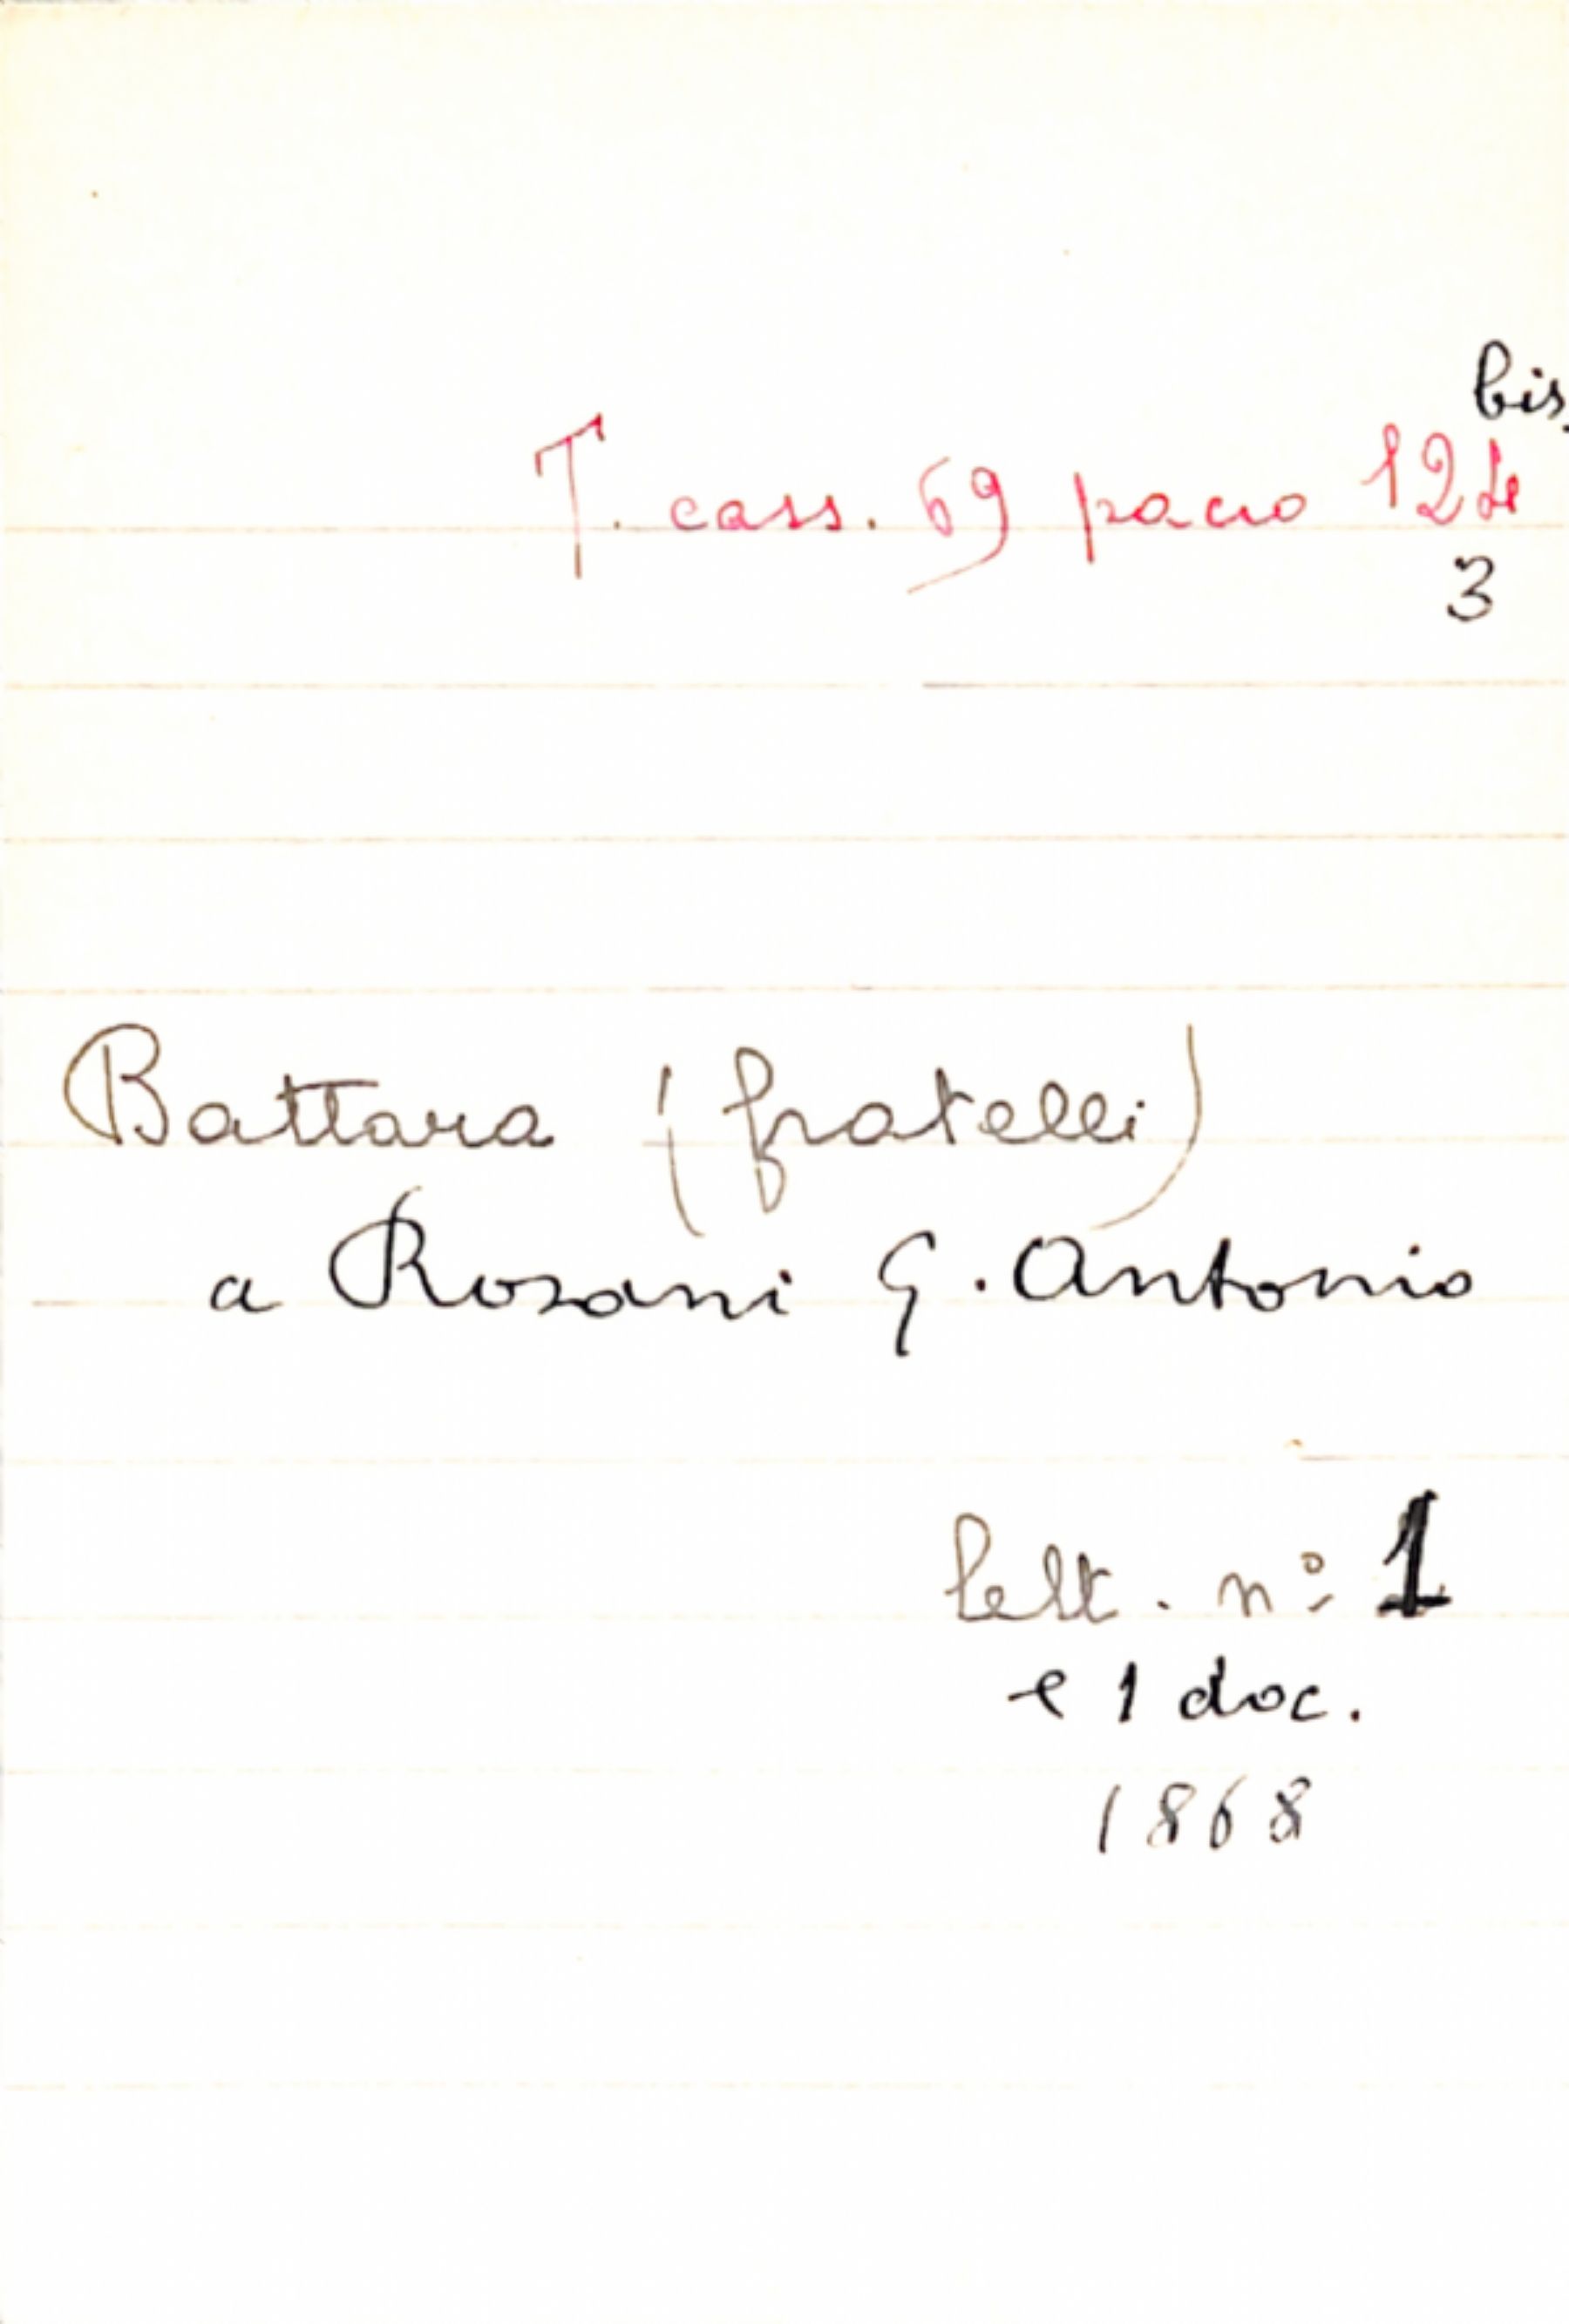 bis.
T. cass. 69 pacco 124
3
Battara (fratelli)
a Rosani G. Antonio
lett. n° 1
e 1 doc.
1868